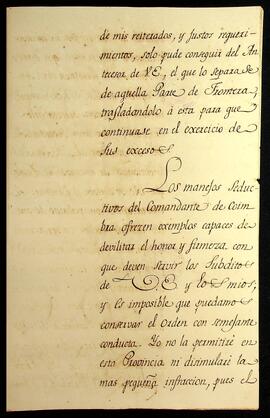 de mis reiterados, y justos requeri-
mientos, solo pude conseguir del An-
tecesor de VE, el que lo separase
de aquella Parte de Frontera,
trasladandolo à esta para que
continuase en el exercicio de
sus excesos.
Los manejos seduc-
tivos del Comandante de Coim-
bra ofrecen exemplos capaces de
devilitar el honor y firmeza, con
que deven servir los Subditos
de V.E y los mios;
y es imposible que puedamos
conservar el Orden con semejante
conducta. Yo no la permitiré en
esta Provincia ni disimularé la
mas pequeña infraccion, pues el